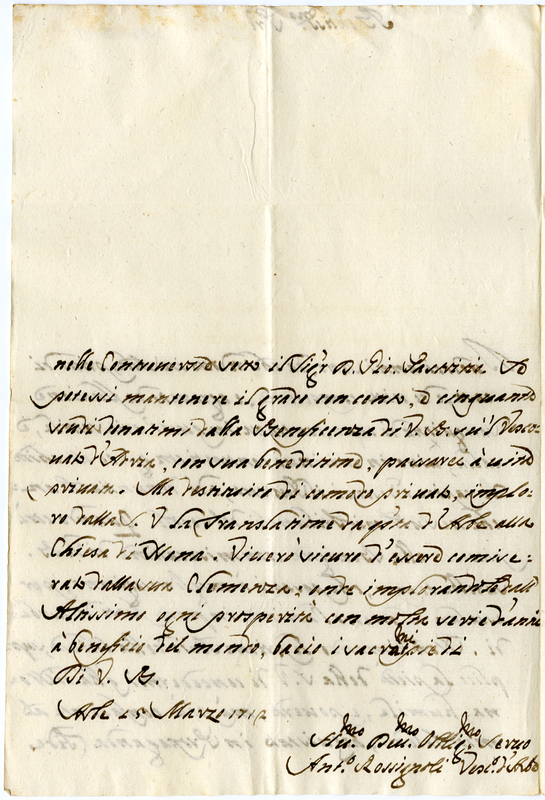 nelle Controversie sotto il Sigr D. Gio. Pastritio. Io
potessi mantenere il grado con cento, e cinquanta
scudi donatimi dalla Beneficenza di V. B. sù'l Vesco-
uato d'Arbe, con sua beneditione, passarei à uita
priuata. Ma destituito di comodo priuato, implo-
ro dalla S. V. la Translatione da qsta d'Arbe alla
Chiesa di Nona. Viuerò sicuro d'essere comise-
rato dalla sua Clemenza; onde implorando dall
Altissimo ogni prosperità con molta serie d'anni
à beneficio del mondo, bacio i sacri piedi
Di V. B.
Arbe 25 Marzo 1712
Hu.mo Deu.mo Oblig.mo Seruo
Ant.o Rossignoli Vesc.o d'Arbe